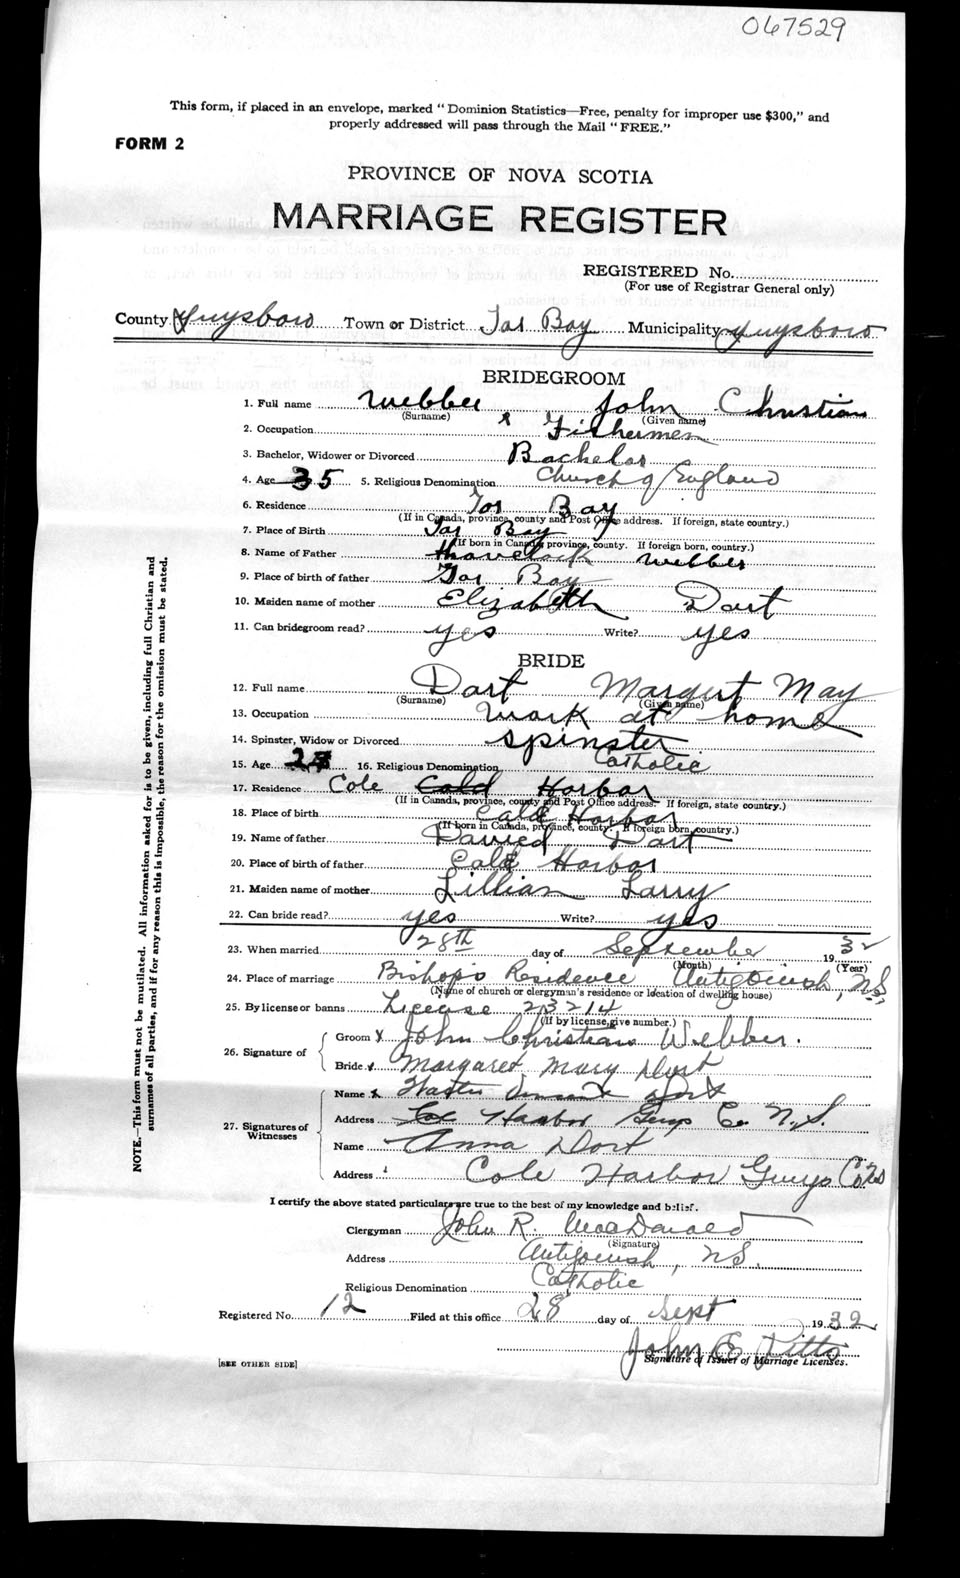 067529
This form, if placed in an envelope, marked "Dominion Statistics—Free, penalty for improper use $300," and
properly addressed will pass through the Mail "FREE."
FORM 2
PROVINCE OF NOVA SCOTIA
MARRIAGE REGISTER
REGISTERED No.
(For use of Registrar General only)
County Guysboro Town or District Tor Bay Municipality Guysboro
BRIDEGROOM
1. Full name Webber John Christian
(Surname) (Given name)
2. Occupation x Fishermen
3. Bachelor, Widower or Divorced Bachelor
4. Age 35 5. Religious Denomination Church of England
6. Residence Tor Bay
(If in Canada, province, county and Post Office address. If foreign, state country.)
7. Place of Birth Tor Bay
(If born in Canada, province, county. If foreign born, country.)
8. Name of Father Webber
9. Place of birth of father Tor Bay
10. Maiden name of mother Elizabeth Dort
11. Can bridegroom read? yes Write? yes
BRIDE
12. Full name Dort Margert May
(Surname) (Given name)
13. Occupation work at home
14. Spinster, Widow or Divorced spinster
15. Age 16. Religious Denomination Catholic
17. Residence Cole Cald Harbor
(If in Canada, province, county and Post Office address. If foreign, state country.)
18. Place of birth Harbor
(If born in Canada, province, county. If foreign born, country.)
19. Name of father Dort
20. Place of birth of father Harbor
21. Maiden name of mother Lillian Larry
22. Can bride read? yes Write? yes
23. When married 28th day of September 1932
(Month) (Year)
24. Place of marriage Bishop's Residence Antigonish, N.S.
(Name of church or clergyman's residence or location of dwelling house)
25. By license or banns License 23214
(If by license, give number.)
26. Signature of
Groom x John Christian Webber.
Bride x Margaret Mary Dort
27. Signatures of Witnesses
Name x Dort
Address Harbor Guys Co. N.S.
Name Anna Dort
Address Cole Harbor Guys Co NS
I certify the above stated particulars are true to the best of my knowledge and belief.
Clergyman John R. MacDonald
(Signature)
Address Antigonish, NS.
Religious Denomination Catholic
Registered No. 12 Filed at this office 28 day of Sept 1932
John E
Signature of Issuer of Marriage Licenses.
[SEE OTHER SIDE]
NOTE.—This form must not be mutilated. All information asked for is to be given, including full Christian and
surnames of all parties, and if for any reason this is impossible, the reason for the omission must be stated.